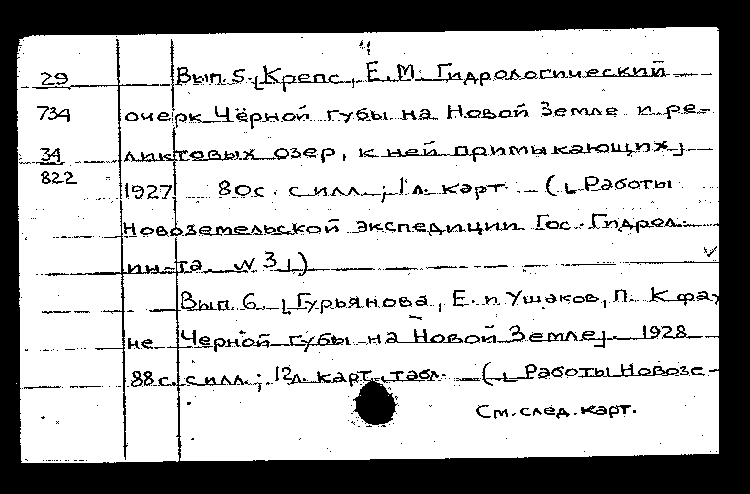 4
29 Вып. 5. [Крепс, Е.М. Гидрологический
734 очерк Чёрной губы на Новой Земле и ре-
34 ликтовых озер, к ней примыкающих]
822 1927. 80с. с илл.; 1л. карт. ([Работы
Новоземельской экспедиции Гос. Гидрол.
ин-та. N 3])
Вып. 6. [Гурьянова, Е. и Ушаков, П. К фау
не Черной губы на Новой Земле]. 1928
88с. с илл.; 12л. карт., табл. ([Работы Новозе-
См. след. карт.